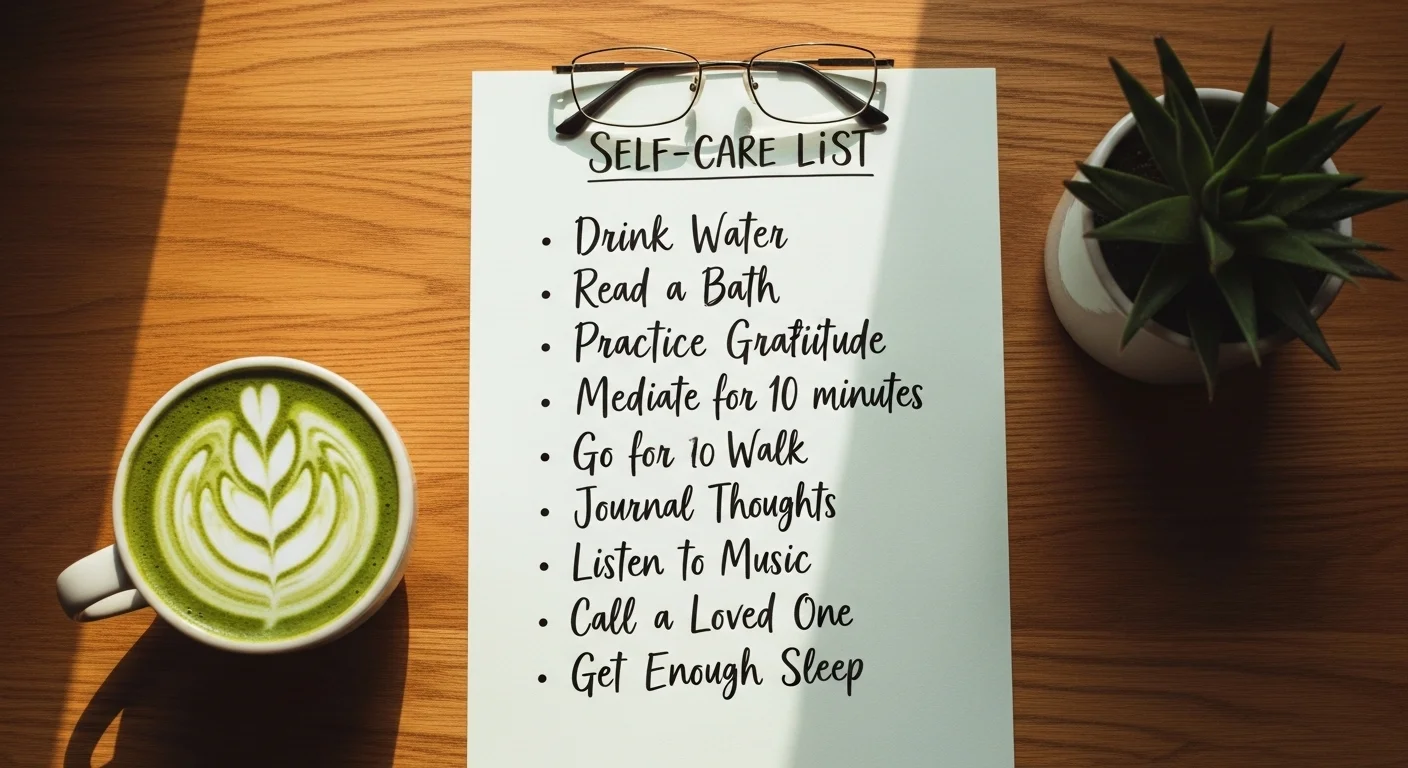 SELF-CARE LiST
• Drink Water
• Read a Bath
• Practice Gratiitude
• Mediate for 10 minutes
• Go for 10 Walk
• Journal Thoughts
• Listen to Music
• Call a Loved One
• Get Enough Sleep